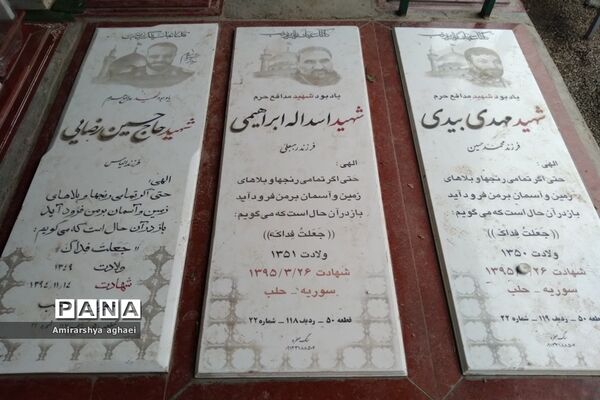 یادبود شهید مدافع حرم
شهید مهدی بیدی
فرزند محمدحسین
الهی:
حتی اگر تمامی رنجها و بلاهای
زمین و آسمان بر من فرود آید
باز در آن حال است که می گویم:
((جعلت فداک))
ولادت ۱۳۵۰
شهادت ۱۳۹۵/۳/۲۶
سوریه - حلب
قطعه ۵۰ - ردیف ۱۱۹ - شماره ۲۲
یادبود شهید مدافع حرم
شهید اسداله ابراهیمی
فرزند
الهی:
حتی اگر تمامی رنجها و بلاهای
زمین و آسمان بر من فرود آید
باز در آن حال است که می گویم:
((جعلت فداک))
ولادت ۱۳۵۱
شهادت ۱۳۹۵/۳/۲۶
سوریه - حلب
قطعه ۵۰ - ردیف ۱۱۸ - شماره ۲۲
شهید حاج حسین رضایی
فرزند عباس
الهی:
حتی اگر تمامی رنجها و بلاهای
زمین و آسمان بر من فرود آید
باز در آن حال است که می گویم:
"جعلت فداک"
ولادت ۱۳۴۹
شهادت ۱۳۹۴،۱۱،۱۴
PANA
Amirarshya aghaei